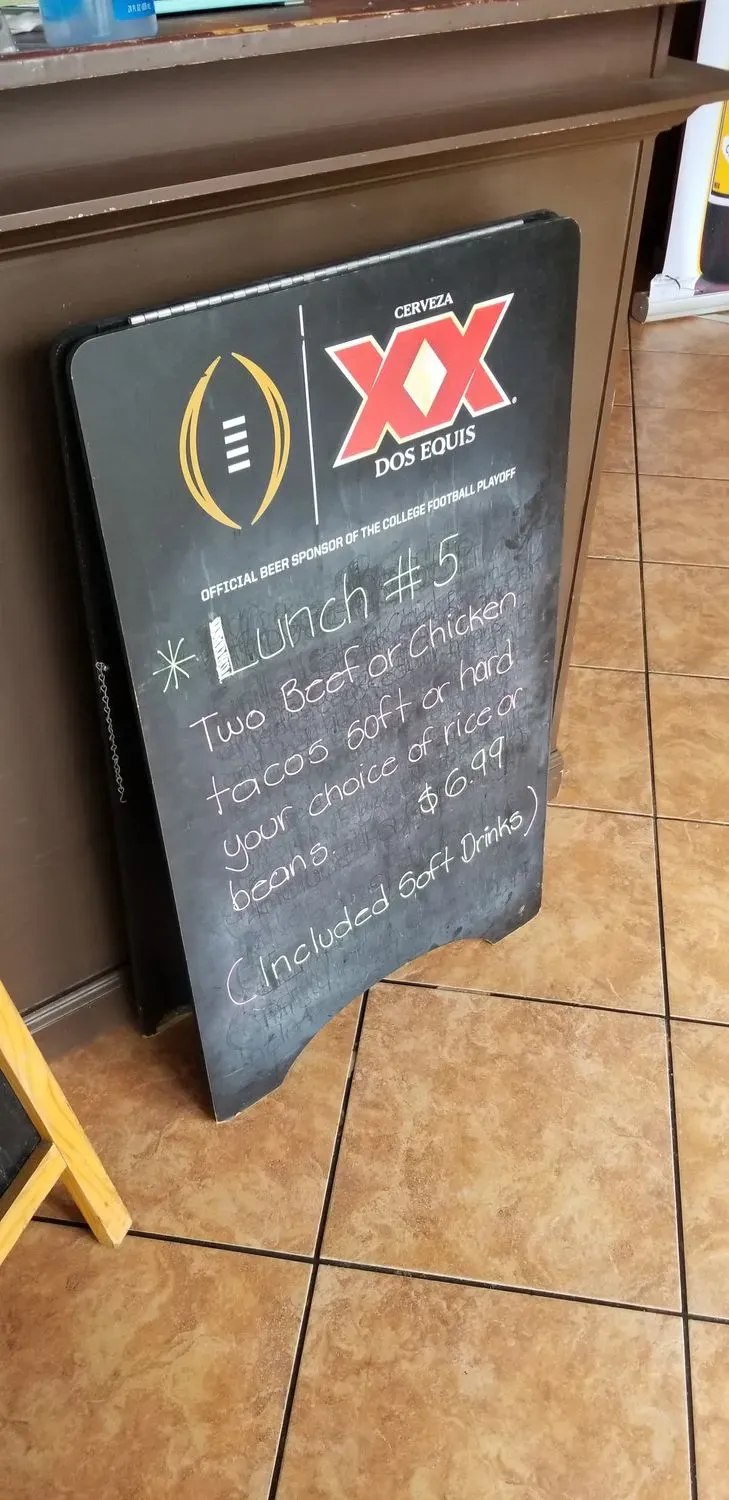 CERVEZA
XX
DOS EQUIS
OFFICIAL BEER SPONSOR OF THE COLLEGE FOOTBALL PLAYOFF
* Lunch #5
Two Beef or Chicken
tacos soft or hard
your choice of rice or
beans. $6.99
(Included Soft Drinks)